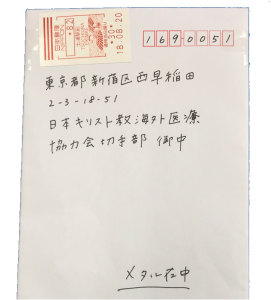 日本郵便
18.08.20
1690051
東京都新宿区西早稲田
2-3-18-51
日本キリスト教海外医療
協力会切手部 御中
メタル在中